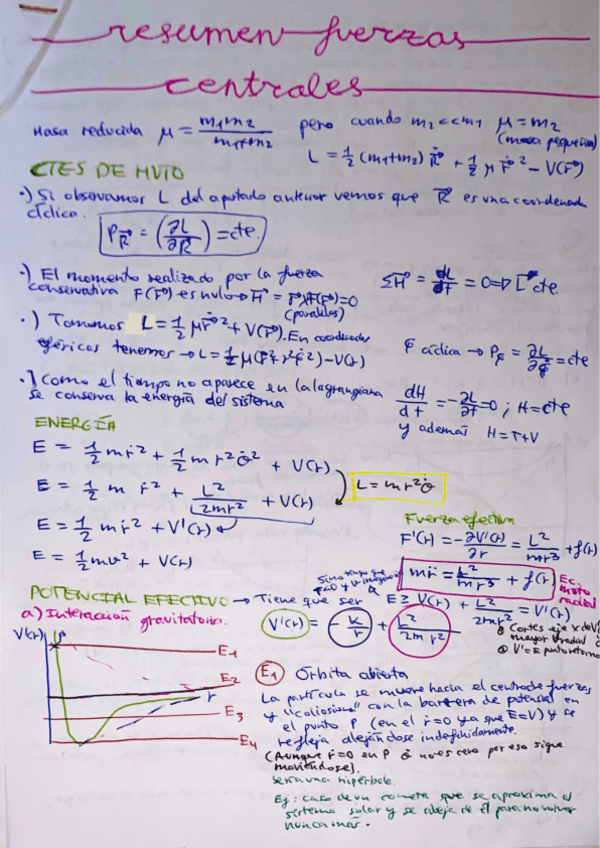 resumen fuerzas
centrales
Masa reducida μ = m₁·m₂/m₁+m₂ pero cuando m₂<<m₁ μ = m₂
(masa pequeña)
L = 1/2 (m₁+m₂) Ṙ² + 1/2 μ ṙ² - V(r)
CTES DE MVTO
·) Si observamos L del apartado anterior vemos que R es una coordenada
cíclica.
P_R = (∂L/∂Ṙ) = cte.
·) El momento realizado por la fuerza
conservativa F(r) es nulo → M = r×F(r) = 0
(paralelos)
ΣM = dL/dt = 0 ⇒ L cte.
·) Tomamos L = 1/2 μ ṙ² + V(r). En coordenadas
esféricas tenemos → L = 1/2 μ(ṙ²+r²φ̇²) - V(r)
φ cíclica → Pφ = ∂L/∂φ̇ = cte
·) Como el tiempo no aparece en la lagrangiana
se conserva la energía del sistema
dH/dt = -∂L/∂t = 0 ; H = cte
y además H = T+V
ENERGÍA
E = 1/2 m ṙ² + 1/2 m r² θ̇² + V(r)
E = 1/2 m ṙ² + L²/2mr² + V(r)
L = m r² θ̇
E = 1/2 m ṙ² + V'(r)
E = 1/2 m v² + V(r)
Fuerza efectiva
F'(r) = -∂V'(r)/∂r = L²/mr³ + f(r)
m r̈ = L²/mr³ + f(r)
Ec. mvto
radial
POTENCIAL EFECTIVO → Tiene que ser E ≥ V(r) + L²/2mr² = V'(r)
a) Interacción gravitatoria.
V'(r) = -k/r + L²/2mr²
V'=E
V'(r)
P
E₁
E₂
r
E₃
E₄
E₁ Órbita abierta
La partícula se mueve hacia el centro de fuerzas
y "colisiona" con la barrera de potencial en
el punto P (en el ṙ=0 ya que E=V) y se
refleja alejándose indefinidamente.
(Aunque ṙ=0 en P θ̇ no es cero por eso sigue
moviéndose).
Sería una hipérbola.
Ej: caso de un cometa que se aproxima al
sistema solar y se aleja de él para no volver
nunca más.